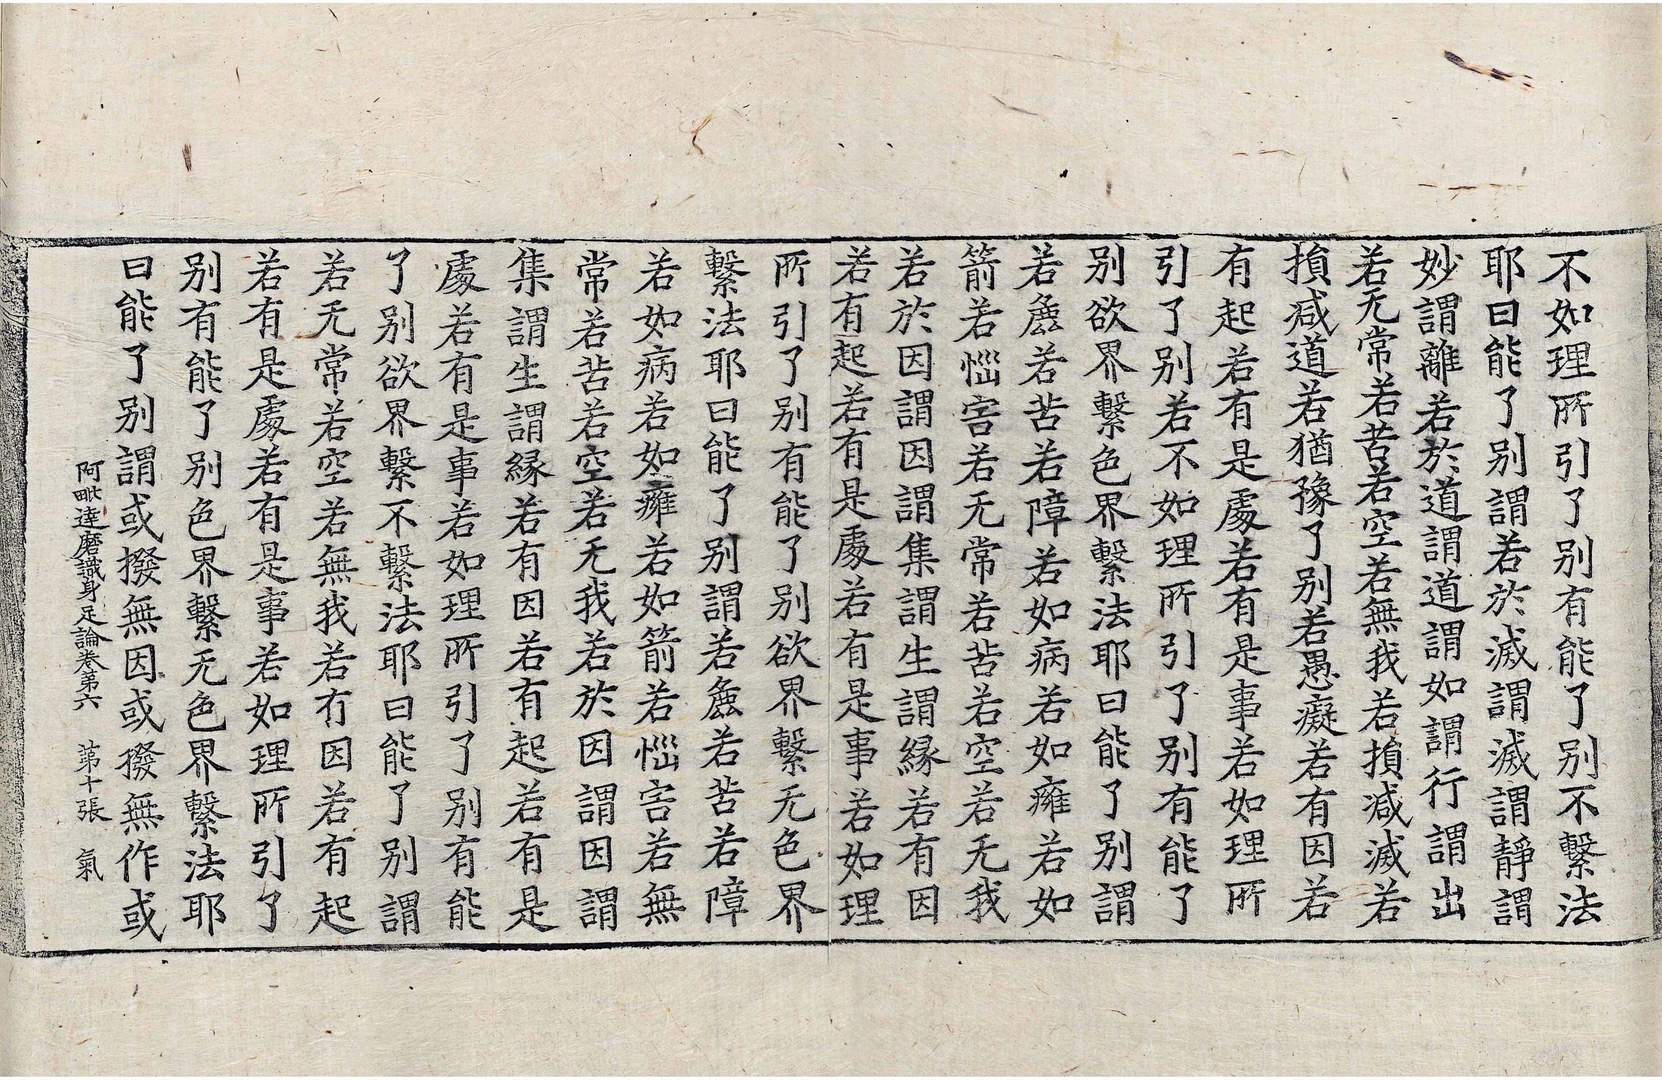 不如理所引了別有能了別不繫法
耶曰能了別謂若於滅謂滅謂靜謂
妙謂離若於道謂道謂如謂行謂出
若无常若苦若空若無我若損減滅若
損減道若猶豫了別若愚癡若有因若
有起若有是處若有是事若如理所
引了別若不如理所引了別有能了
別欲界繫色界繫法耶曰能了別謂
若麁若苦若障若如病若如癰若如
箭若惱害若无常若苦若空若无我
若於因謂因謂集謂生謂緣若有因
若有起若有是處若有是事若如理
所引了別有能了別欲界繫无色界
繫法耶曰能了別謂若麁若苦若障
若如病若如癰若如箭若惱害若無
常若苦若空若无我若於因謂因謂
集謂生謂緣若有因若有起若有是
處若有是事若如理所引了別有能
了別欲界繫不繫法耶曰能了別謂
若无常若空若無我若有因若有起
若有是處若有是事若如理所引了
別有能了別色界繫无色界繫法耶
曰能了別謂或撥無因或撥無作或
阿毗達磨識身足論卷第六 第十張 氣